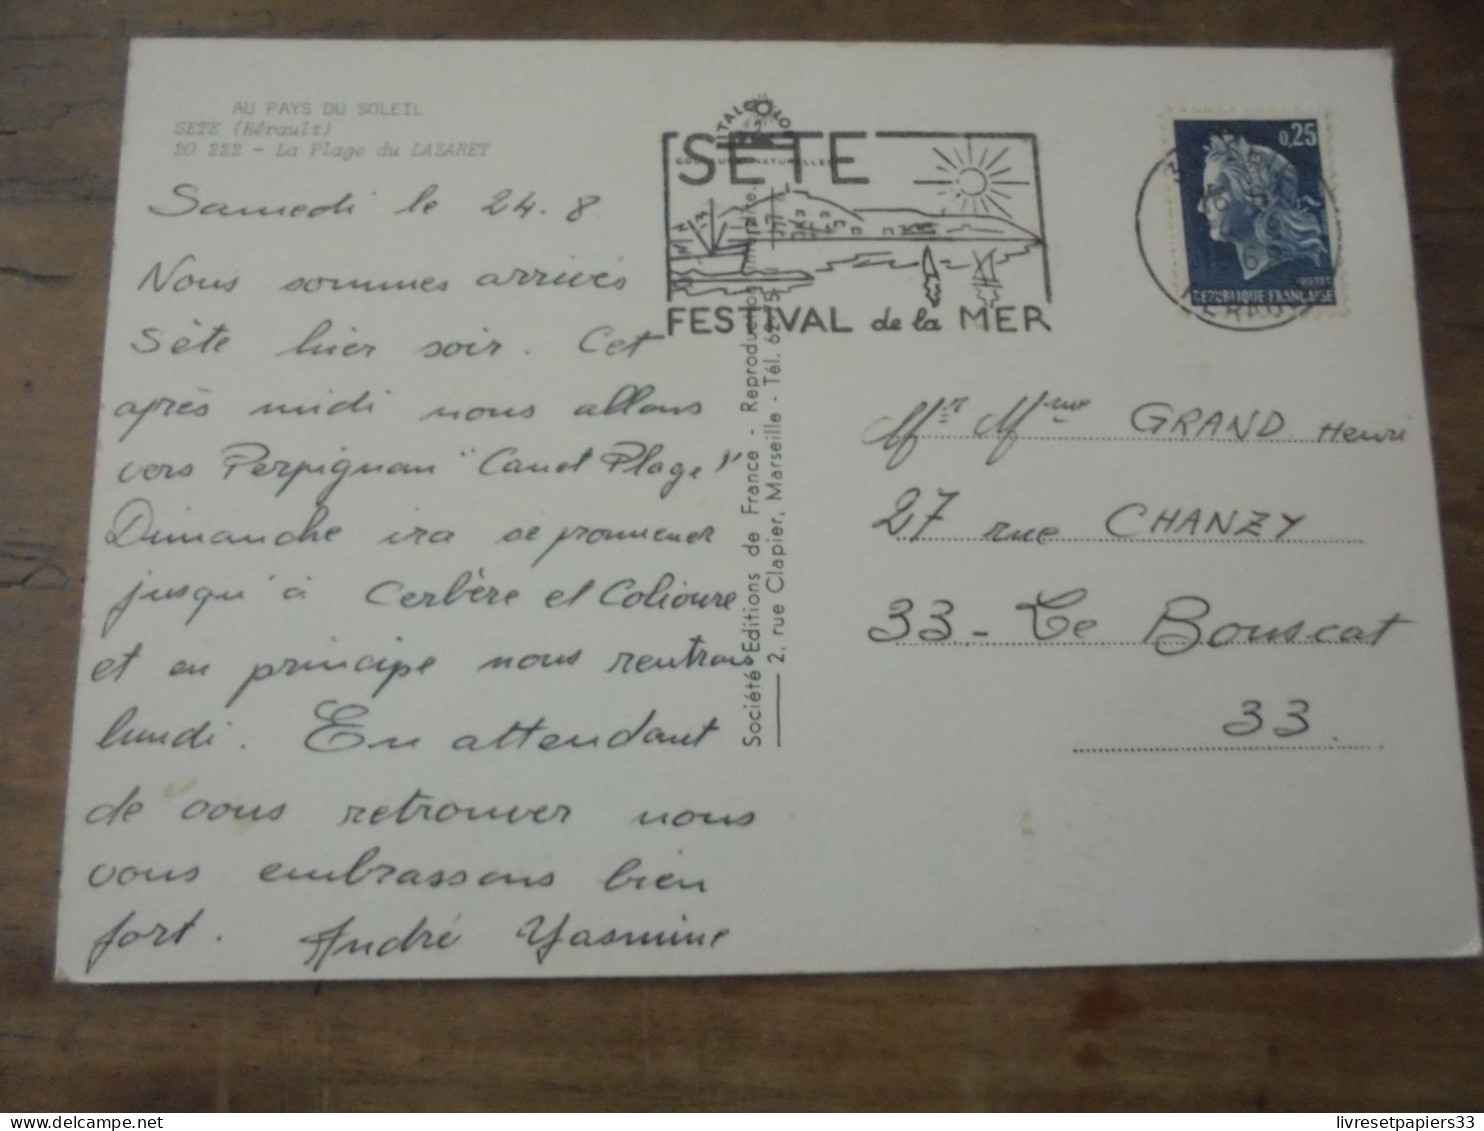 AU PAYS DU SOLEIL
SETE (Hérault)
20 222 - La Plage du LAZARET
Samedi le 24.8
Nous sommes arrivés
Sète hier soir. Cet
après midi nous allons
vers Perpignan "Canet Plage"
Dimanche ira se promener
jusqu'à Cerbère et Colioure
et en principe nous rentrons
lundi. En attendant
de vous retrouver nous
vous embrassons bien
fort. André Yasmine
SETE
FESTIVAL de la MER
Société Editions de France - Reproduction interdite.
2, rue Clapier, Marseille - Tél. 62-75-17
0,25
REPUBLIQUE FRANÇAISE
HERAULT
Mr Mme GRAND Henri
27 rue CHANZY
33 - Le Bouscat
33.
delcampe.net
livresetpapiers33